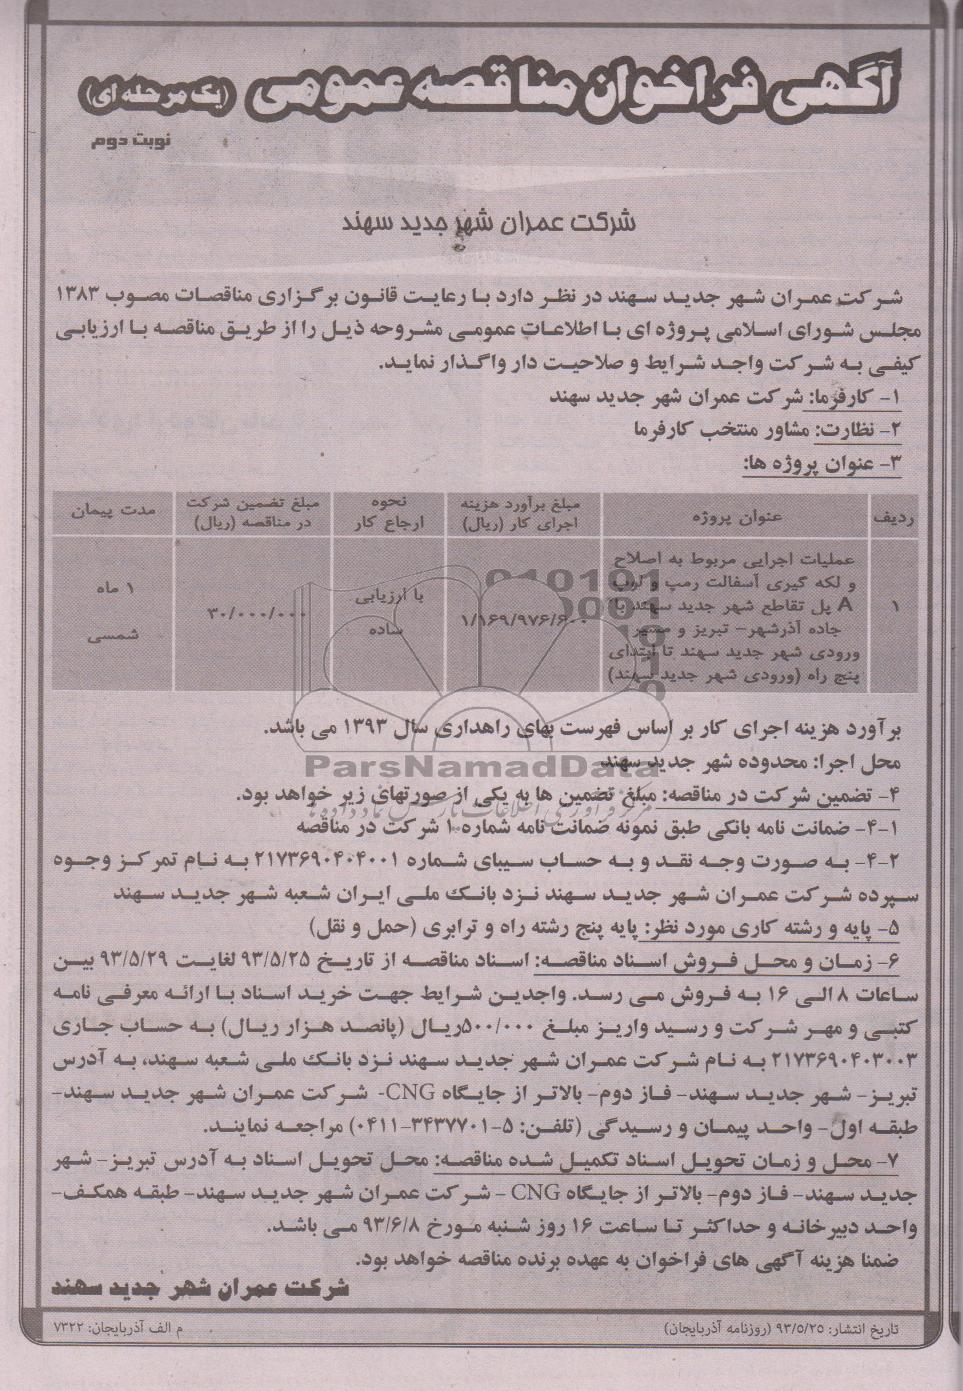 آگهی فراخوان مناقصه عمومی (یک مرحله ای)
نوبت دوم
شرکت عمران شهر جدید سهند
شرکت عمران شهر جدید سهند در نظر دارد با رعایت قانون برگزاری مناقصات مصوب ۱۳۸۳
مجلس شورای اسلامی پروژه ای با اطلاعات عمومی مشروحه ذیل را از طریق مناقصه با ارزیابی
کیفی به شرکت واجد شرایط و صلاحیت دار واگذار نماید.
۱- کارفرما: شرکت عمران شهر جدید سهند
۲- نظارت: مشاور منتخب کارفرما
۳- عنوان پروژه ها:
ردیف عنوان پروژه مبلغ برآورد هزینه اجرای کار (ریال) نحوه ارجاع کار مبلغ تضمین شرکت در مناقصه (ریال) مدت پیمان
۱
عملیات اجرایی مربوط به اصلاح
و لکه گیری آسفالت رمپ و لوپ
A پل تقاطع شهر جدید سهند با
جاده آذرشهر- تبریز و مسیر
ورودی شهر جدید سهند تا ابتدای
پنج راه (ورودی شهر جدید سهند)
۱/۱۶۹/۹۷۶/۶۰۰
با ارزیابی
ساده
۳۰/۰۰۰/۰۰۰
۱ ماه
شمسی
برآورد هزینه اجرای کار بر اساس فهرست بهای راهداری سال ۱۳۹۳ می باشد.
محل اجرا: محدوده شهر جدید سهند
ParsNamadData
۴- تضمین شرکت در مناقصه: مبلغ تضمین ها به یکی از صورتهای زیر خواهد بود.
۴-۱- ضمانت نامه بانکی طبق نمونه ضمانت نامه شماره ۱ شرکت در مناقصه
۴-۲- به صورت وجه نقد و به حساب سیبای شماره ۲۱۷۳۶۹۰۴۰۴۰۰۱ به نام تمرکز وجوه
سپرده شرکت عمران شهر جدید سهند نزد بانک ملی ایران شعبه شهر جدید سهند
۵- پایه و رشته کاری مورد نظر: پایه پنج رشته راه و ترابری (حمل و نقل)
۶- زمان و محل فروش اسناد مناقصه: اسناد مناقصه از تاریخ ۹۳/۵/۲۵ لغایت ۹۳/۵/۲۹ بین
ساعات ۸ الی ۱۶ به فروش می رسد. واجدین شرایط جهت خرید اسناد با ارائه معرفی نامه
کتبی و مهر شرکت و رسید واریز مبلغ ۵۰۰/۰۰۰ریال (پانصد هزار ریال) به حساب جاری
۲۱۷۳۶۹۰۴۰۳۰۰۳ به نام شرکت عمران شهر جدید سهند نزد بانک ملی شعبه سهند، به آدرس
تبریز- شهر جدید سهند- فاز دوم- بالاتر از جایگاه CNG- شرکت عمران شهر جدید سهند-
طبقه اول- واحد پیمان و رسیدگی (تلفن: ۵-۳۴۳۷۷۰۱-۰۴۱۱) مراجعه نمایند.
۷- محل و زمان تحویل اسناد تکمیل شده مناقصه: محل تحویل اسناد به آدرس تبریز- شهر
جدید سهند- فاز دوم- بالاتر از جایگاه CNG - شرکت عمران شهر جدید سهند- طبقه همکف-
واحد دبیرخانه و حداکثر تا ساعت ۱۶ روز شنبه مورخ ۹۳/۶/۸ می باشد.
ضمنا هزینه آگهی های فراخوان به عهده برنده مناقصه خواهد بود.
شرکت عمران شهر جدید سهند
تاریخ انتشار: ۹۳/۵/۲۵ (روزنامه آذربایجان)
م الف آذربایجان: ۷۳۲۲